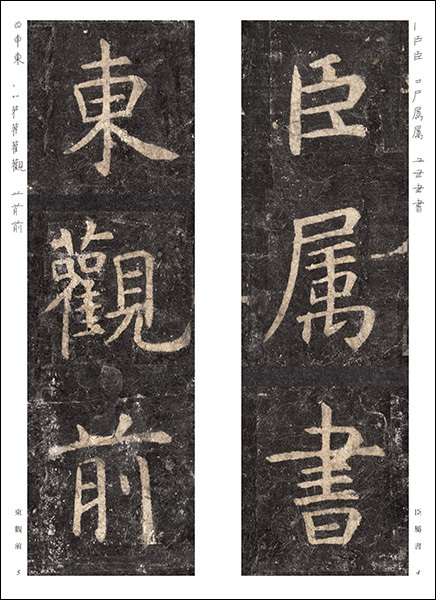 臣属書
臣屬書
4
東觀前
東觀前
5